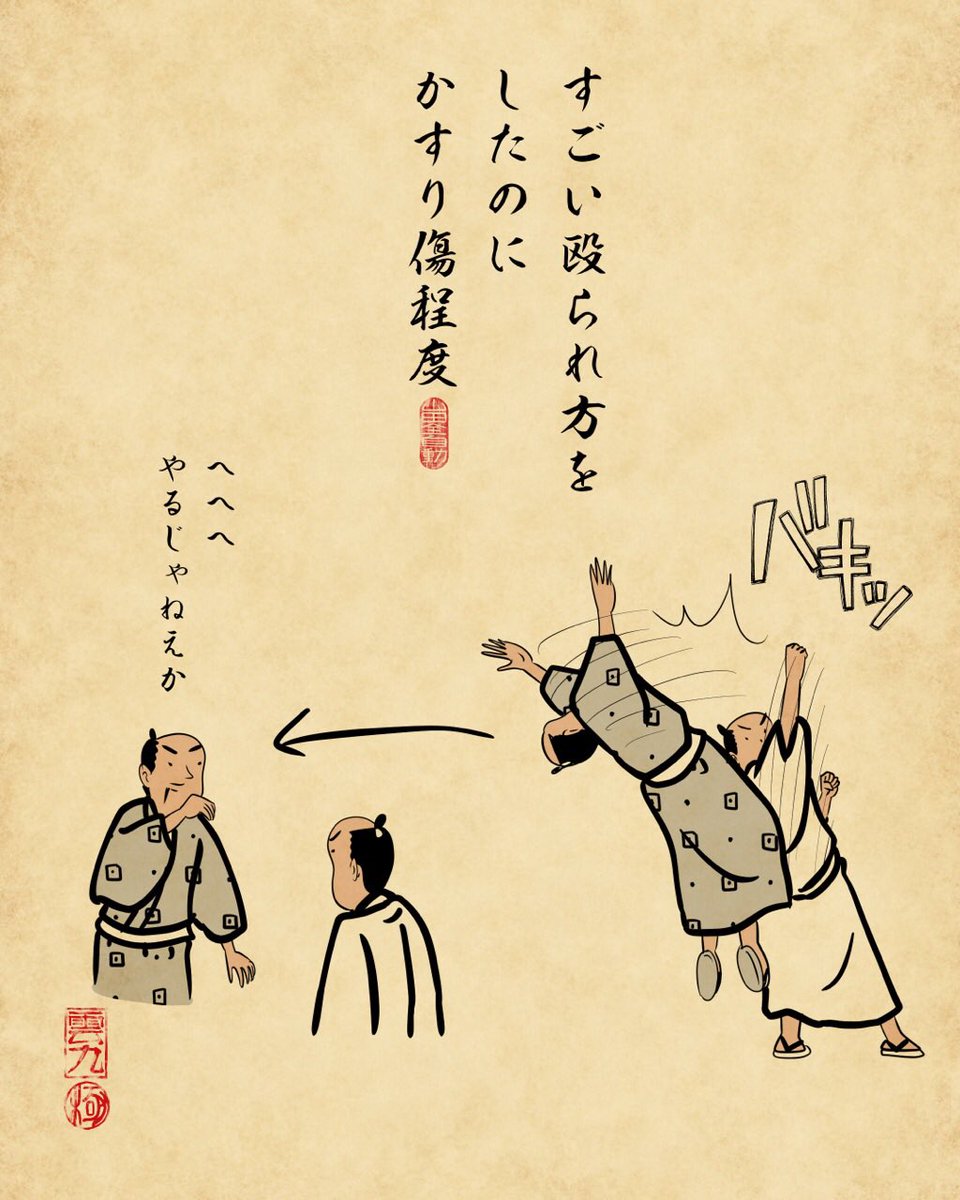 すごい殴られ方を
したのに
かすり傷程度
バキッ
へへへ
やるじゃねえか